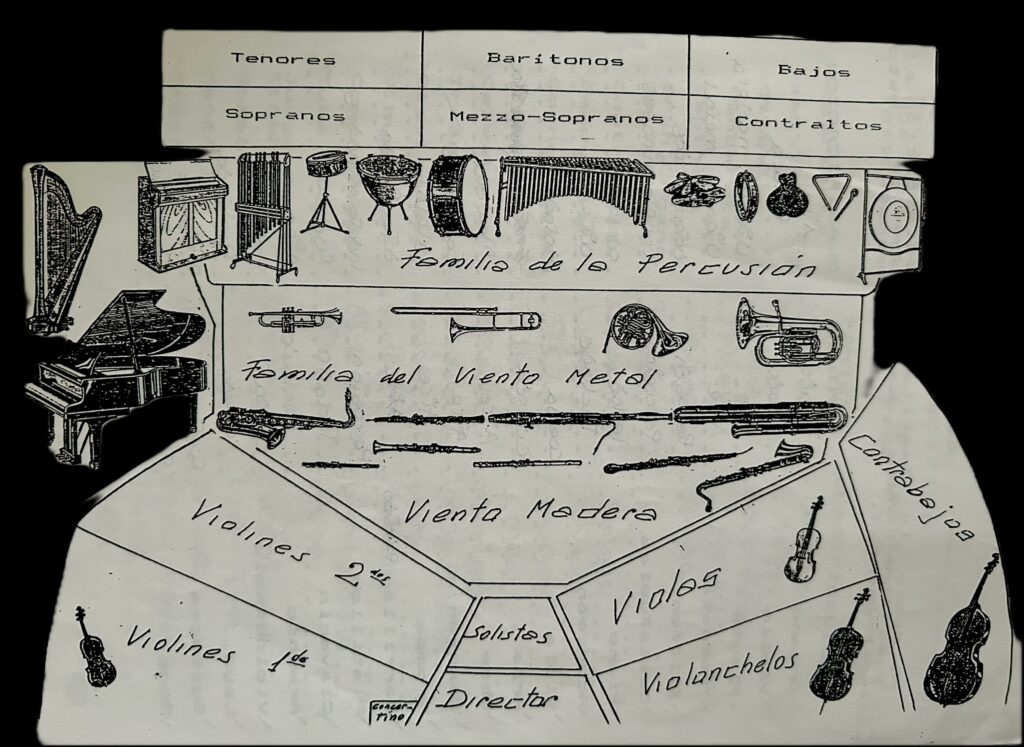 Tenores
Barítonos
Bajos
Sopranos
Mezzo-Sopranos
Contraltos
Familia de la Percusión
Familia del Viento Metal
Viento Madera
Contrabajos
Violines 2dos
Violas
Solistas
Violines 1os
Violonchelos
Director
Concer-
tino